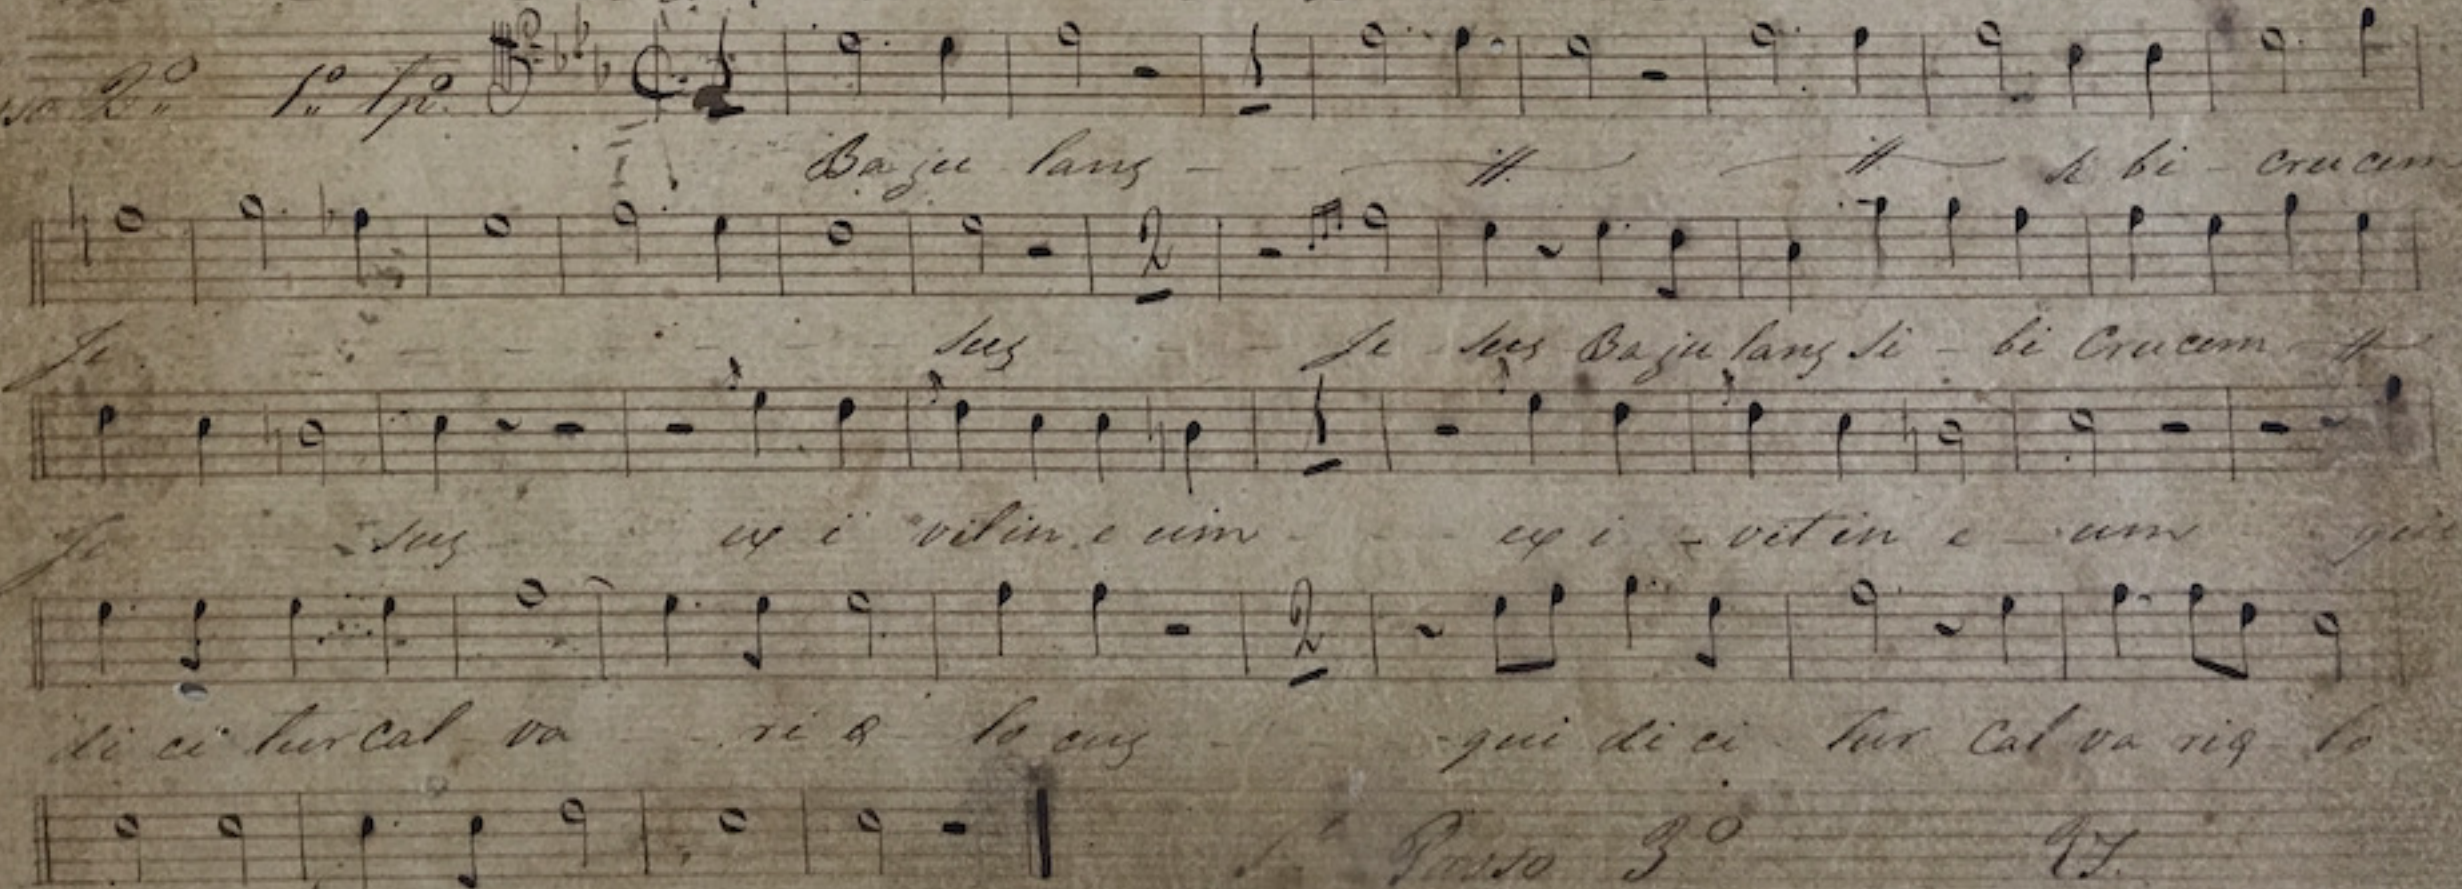 so 2º 1º Tpº
Baju lans - - - # # si bi - crucem
Je - - - - - - - sus - - - Je - sus Baju lans Si - bi Crucem #
Je - sus ex i vit in e um - - - ex i - vit in e - um qui
di ci tur cal va - - ri æ lo cus - - - qui di ci - tur Cal va riæ - lo
Passo 3º